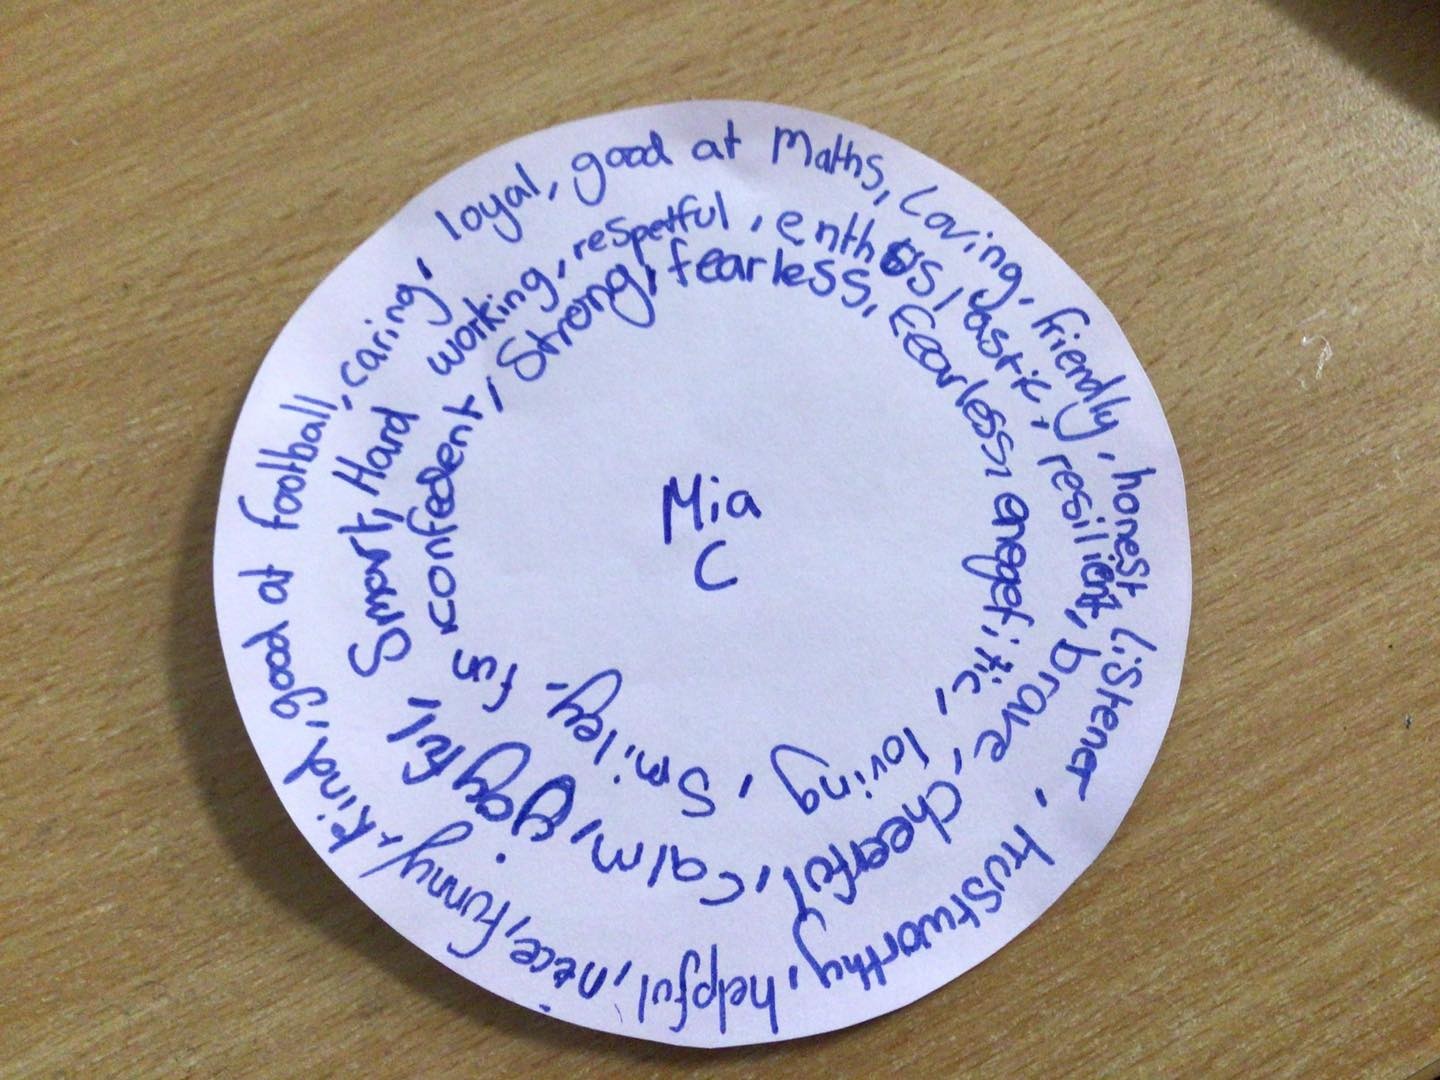 Kind, good at football, caring, loyal, good at Maths, Loving, friendly, honest, Listener, trustworthy, helpful, niece, funny,
Smart, Hard working, respetful, enthusiastic, resilient, brave, cheerful, calm,
fun confedent, Strong, fearless, fearless, enegetitic, loving, Smiley,
Mia
C